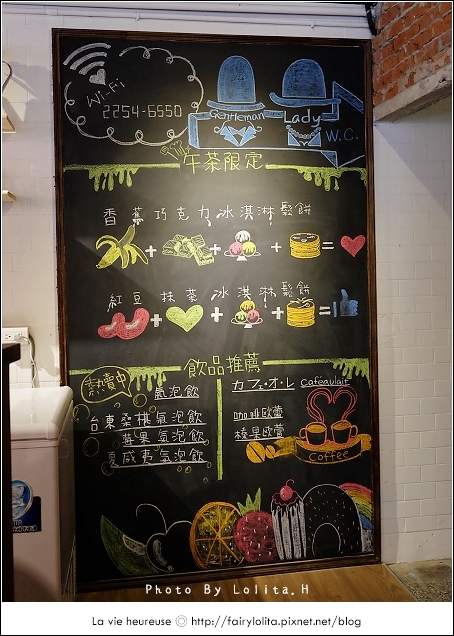 Wi-Fi
2254-6550
Gentleman
Lady
W.C.
午茶限定
香蕉巧克力冰淇淋鬆餅
+ + + =
紅豆抹茶冰淇淋鬆餅
+ + + =
飲品推薦
熱賣中
氣泡飲
台東桑椹氣泡飲
莓果氣泡飲
夏威夷氣泡飲
カフェ・オ・レ Caféaulait
咖啡歐蕾
榛果歐蕾
Coffee
Photo By Lolita.H
La vie heureuse ◎ http://fairylolita.pixnet.net/blog